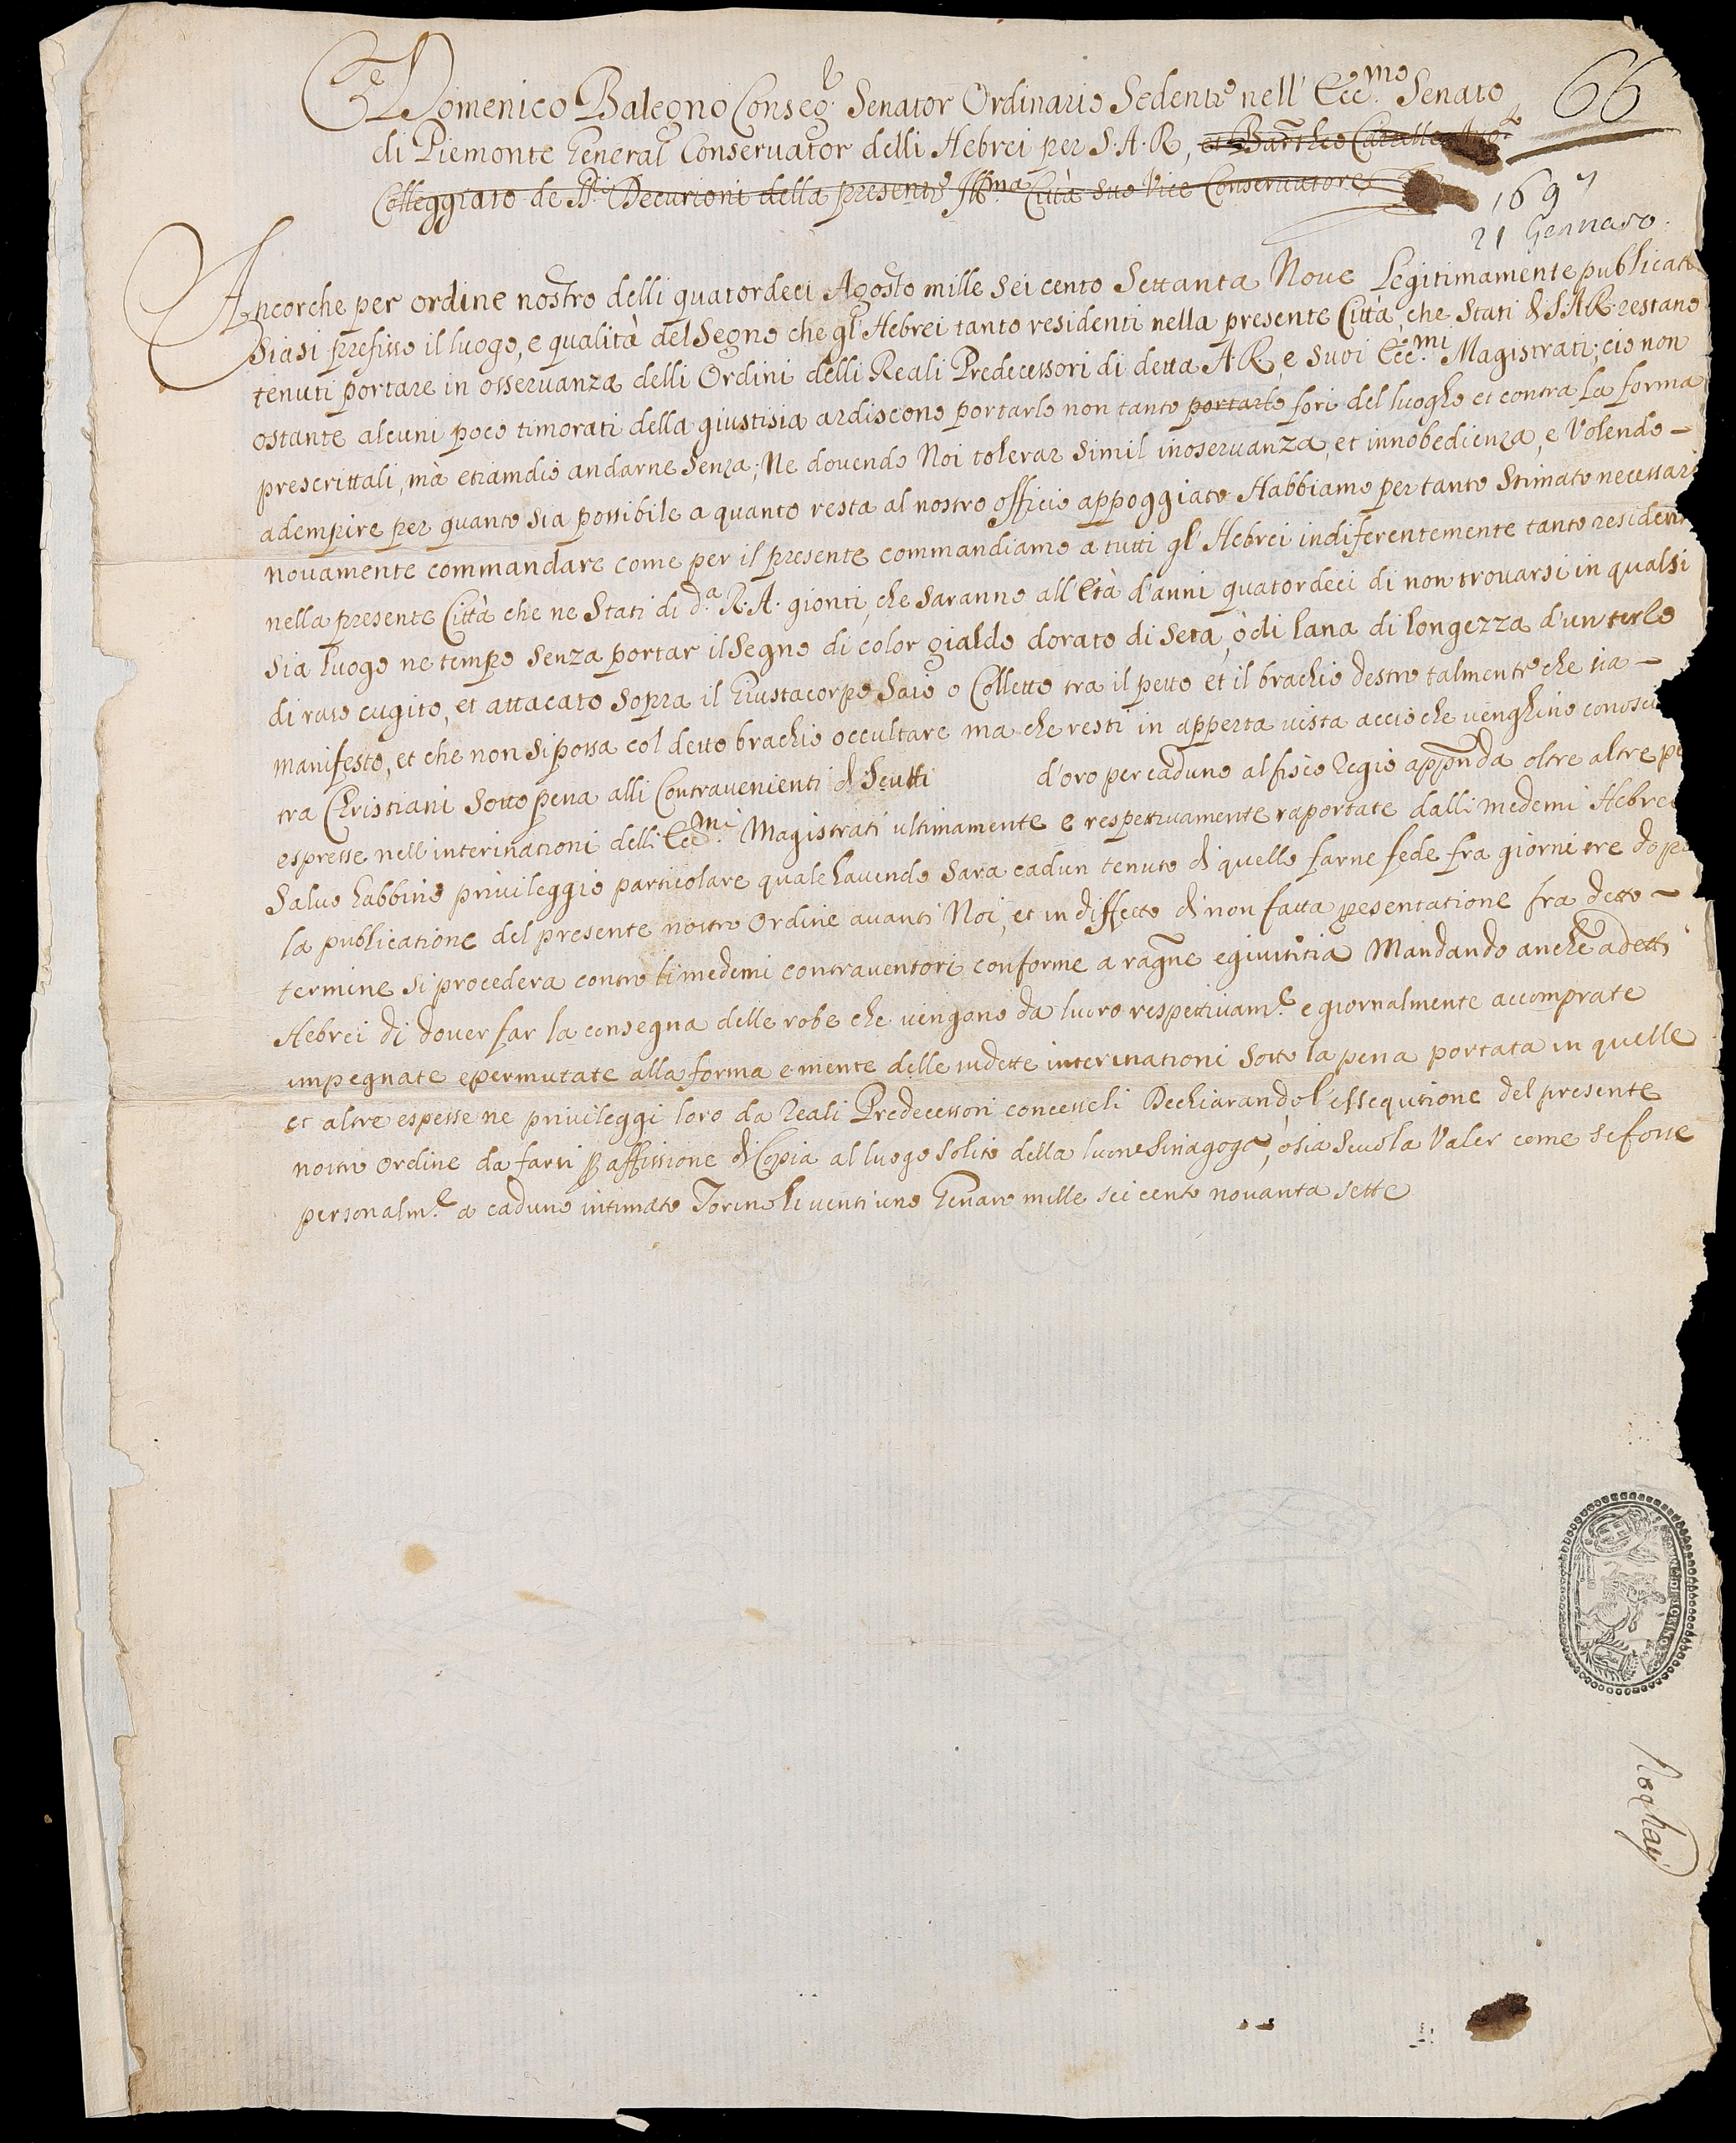 Domenico Balegno Conseg.r Senator Ordinario Sedente nell' Ecc.mo Senato
66
di Piemonte General Conservator delli Hebrei per S.A.R,
Colleggiato de Decurioni della presente Ill.ma Città suo Vice Conservatore
1697
21 Gennaro
Ancorche per ordine nostro delli quatordeci Agosto mille sei cento Settanta Nove Legitimamente publicat
siasi prefisso il luogo, e qualità del Segno che gl'Hebrei tanto residenti nella presente Città, che Stati di S.A.R restano
tenuti portare in osservanza delli Ordini delli Reali Predecessori di detta A R, e suoi Ecc.mi Magistrati; cio non
ostante alcuni poco timorati della giustisia ardiscono portarlo non tanto portarlo fori del luogho et contra la forma
prescrittali, mà etiamdio andarne Senza; Ne dovendo Noi tolerar simil inoservanza, et innobedienza, e Volendo –
adempire per quanto sia possibile a quanto resta al nostro officio appoggiato Habbiamo per tanto Stimato necessari
novamente commandare come per il presente commandiamo a tutti gl'Hebrei indiferentemente tanto resident
nella presente Città che ne Stati di d.a R.A. gionti, che saranno all'Età d'anni quatordeci di non trovarsi in qualsi
sia luogo ne tempo senza portar il Segno di color gialdo dorato di Seta, ò di lana di longezza d'un terso
di raso cugito, et attacato sopra il Giustacorpo Saio o Colletto tra il petto et il brachio destro talmente che sia –
manifesto, et che non si possa col detto brachio occultare ma che resti in apperta vista accio che venghino conosci
tra Christiani sotto pena alli Contravenienti di Scutti d'oro per caduno al fisco Regio apponda oltre altre pe
espresse nell'interinationi delli Ecc.mi Magistrati ultimamente e respettivamente raportate dalli medemi Hebrei
Salvo habbino privileggio particolare quale havendo sara cadun tenuto di quello farne fede fra giorni tre dopo
la publicatione del presente nostro Ordine avanti Noi, et in diffetto di non fatta presentatione fra detto –
termine si procedera contro li medemi contraventori conforme a ragne e giustitia Mandando anche a detti
Hebrei di dover far la consegna delle robe che vengono da luoro respettivam.e e giornalmente accomprate
impegnate e permutate alla forma e mente delle sudette interinationi sotto la pena portata in quelle
et altre espesse ne privileggi loro da Reali Predecessori concesseli Dechiarando l'essequtione del presente
nostro ordine da farsi per affissione di Copia al luogo solito della luoro Sinagoga, ò sia Scuola Valer come se fosse
personalm.e a caduno intimato Torino li venti uno Genaro mille sei cento novanta sette